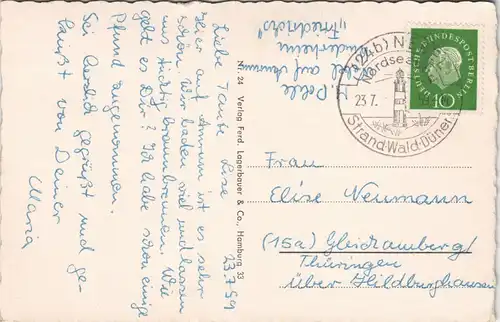 23.7.59
Liebe Tante Elise
hier auf Amrum ist es sehr
schön. Wir baden viel und lassen
uns tüchtig braunbrennen. Wie
geht es Dir? Ich habe schon einige
Pfund angenommen.
Sei herzlich gegrüßt und ge-
küßt von Deiner
Maria
Nr. 24 Verlag Ferd. Lagerbauer & Co., Hamburg 33
Nebel auf Amrum
Kinderheim
"Friedrichs"
(24b) N
Nordsee
23.7.
Strand·Wald·Dünen
DEUTSCHE BUNDESPOST BERLIN
10
Frau
Elise Neumann
(15a) Gleichamberg/
Thüringen
über Hildburghausen